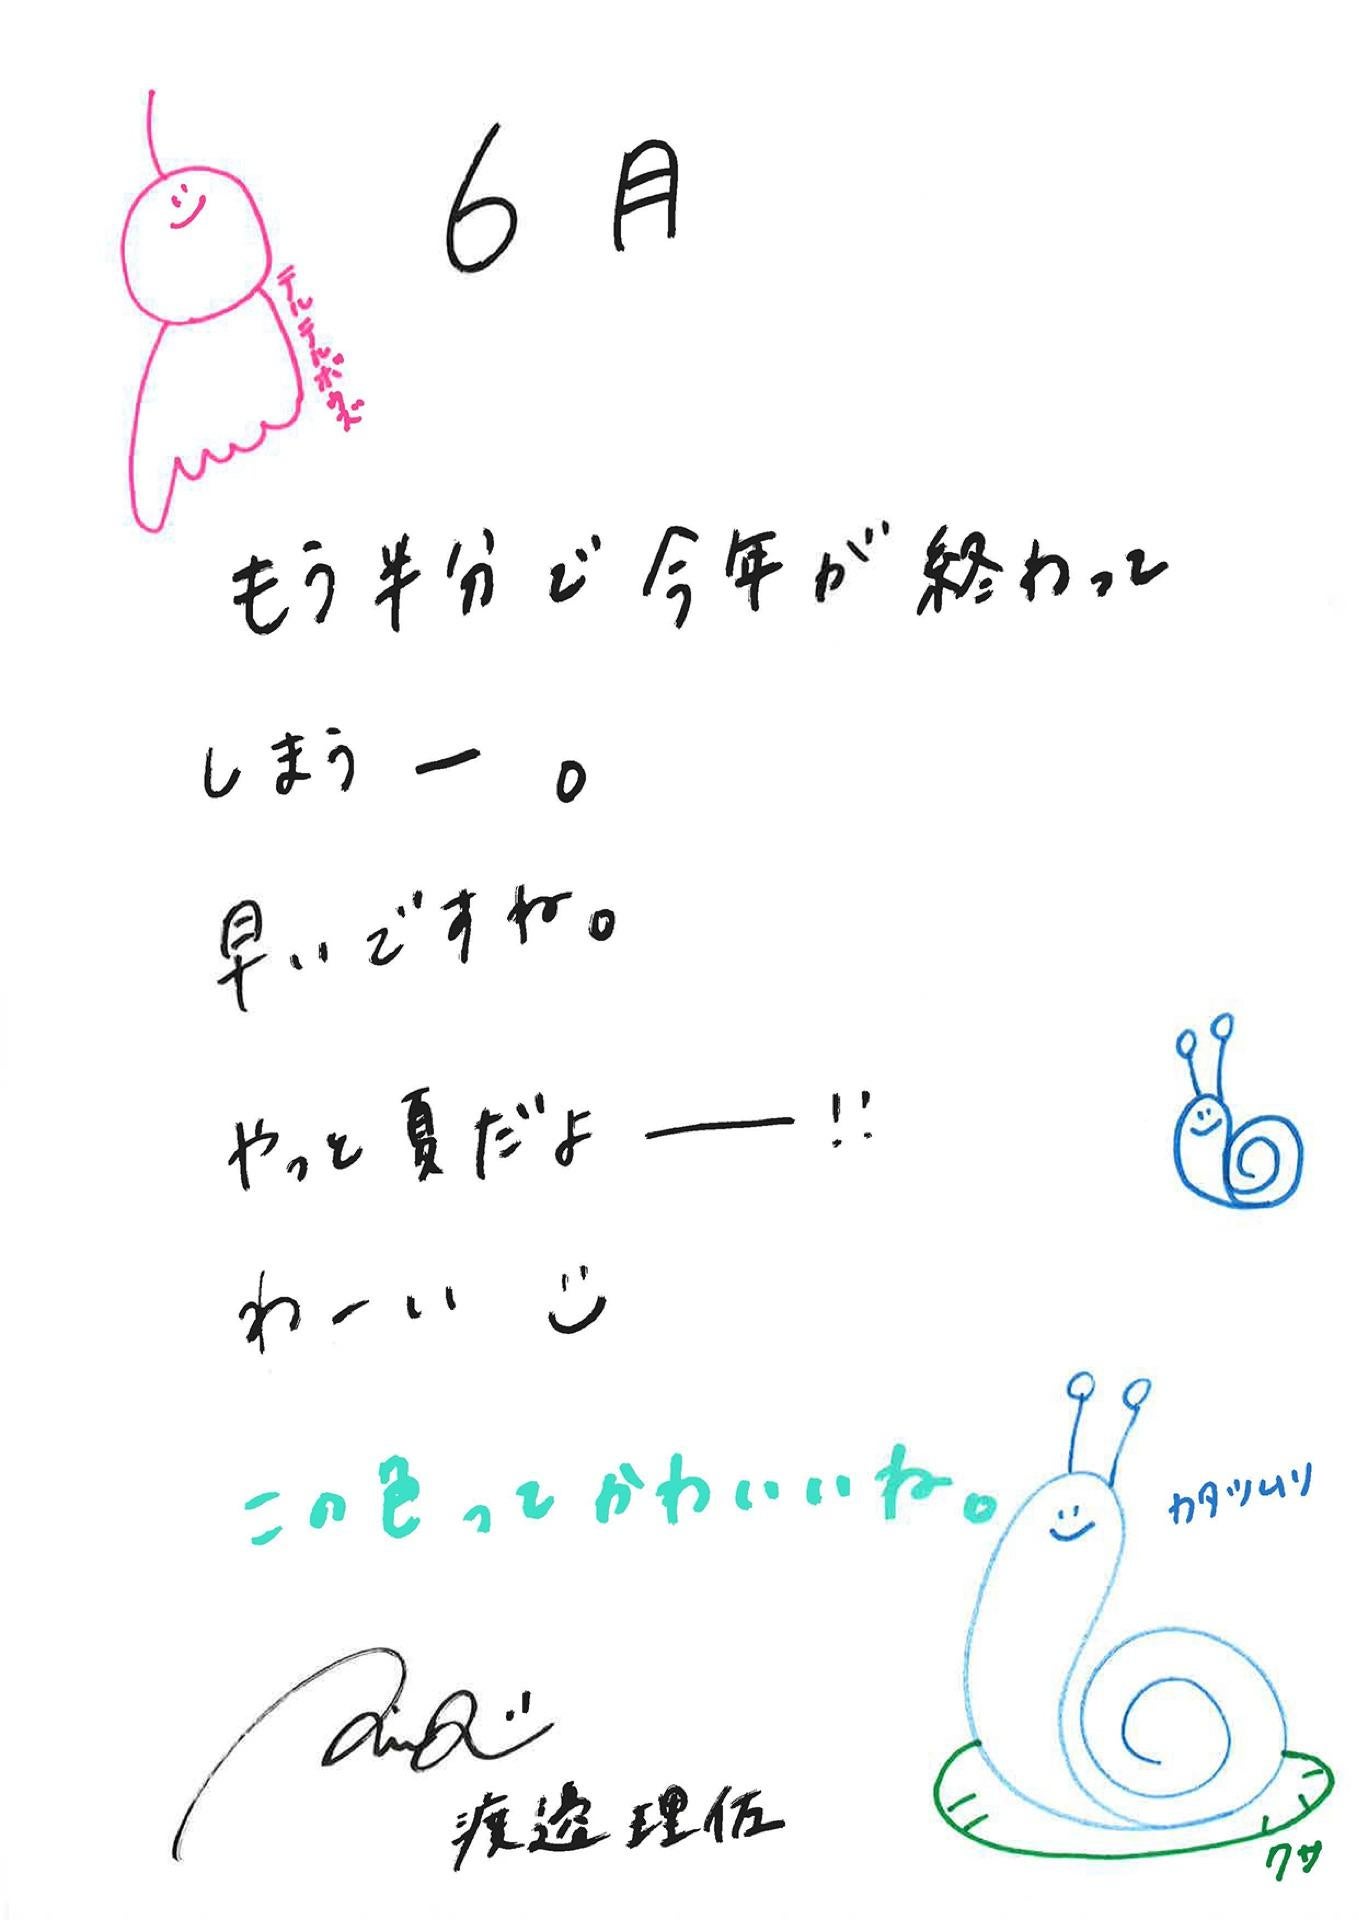 6月
テルテルボウズ
もう半分で今年が終わって
しまうー。
早いですね。
やっと夏だよー!!
わーい
この色ってかわいいね。
カタツムリ
Risa
渡邉理佐
クサ